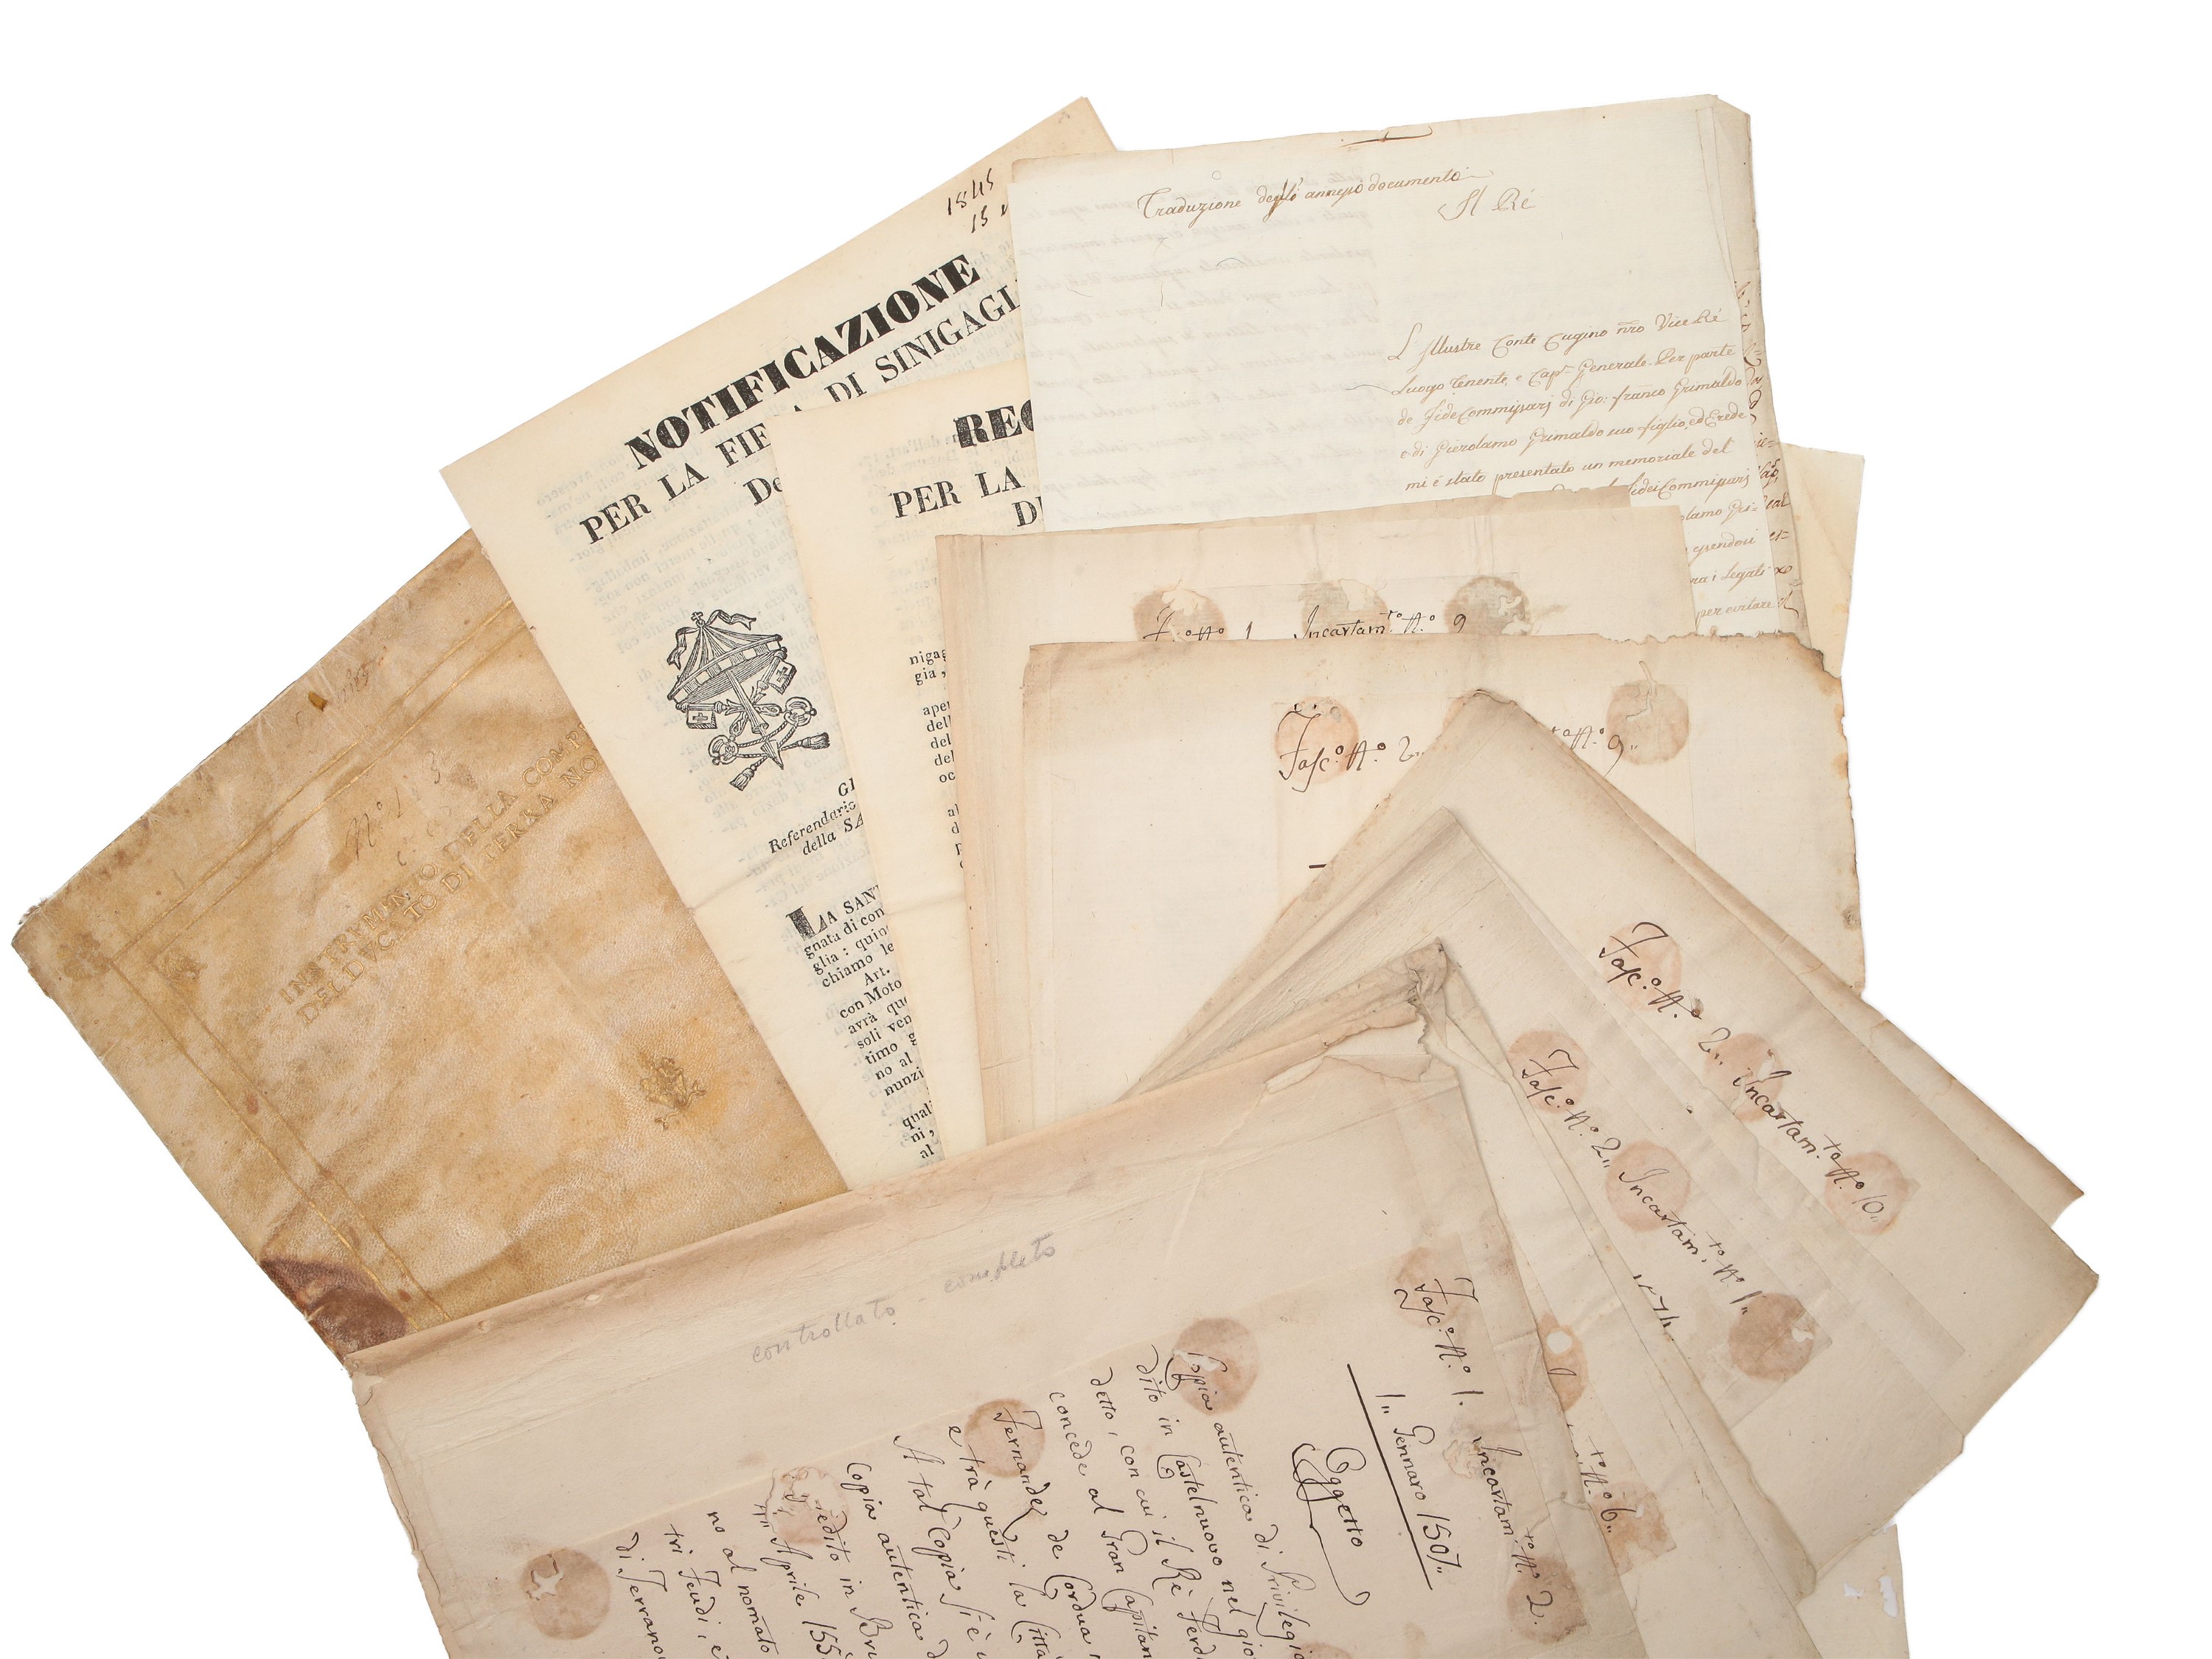 1845
15
NOTIFICAZIONE
PER LA FIE
DI SINIGAGLI
De
GI
Referendario
della SA
LA SAN
gnata di con
glia: quin
chiamo le
Art.
con Moto
avrà qu
soli ven
timo g
no al
nunzi
quali
ni,
al
REG
PER LA
D
nigag
gia,
aper
dell
del
del
oc
al
d
Traduzione degli annessi documento
Il Ré
L'Illustre Conte Cugino nro Vice Ré
Luogo tenente, e Capn Generale. Per parte
de fideCommissarj di Gio: franco Grimaldo
e di Gierolamo Grimaldo suo figlio, ed Erede
mi é stato presentato un memoriale del
fideiCommissarj
olamo Gri=
essendosi
ra i Legali
per evitare
INSTRVMENTO DELLA COMP
DEL DVCATO DI TERRA NO
No. 1 3
F. o No 1 Incartam.to No. 9
Fasc.o No. 2,, to No. 9,,
Fasc.o No. 2,, Incartam.to No. 10,,
Fasc.o No. 2,, Incartam.to No. 1,,
to No. 6,,
controllato - completo
Fasc.o No. 1. Incartam.to No. 2.
1,, Gennaro 1507,,
Oggetto
Copia autentica di Privilegio
dito in Castelnuovo nel gio
detto, con cui il Rè Ferd
concede al Gran Capitan
Fernandez de Cordua
e trà questi la Città
A tal Copia si è
Copia autentica d
edito in Bru
Aprile 155
no al nomato
tri Feudi, e
di Terranov